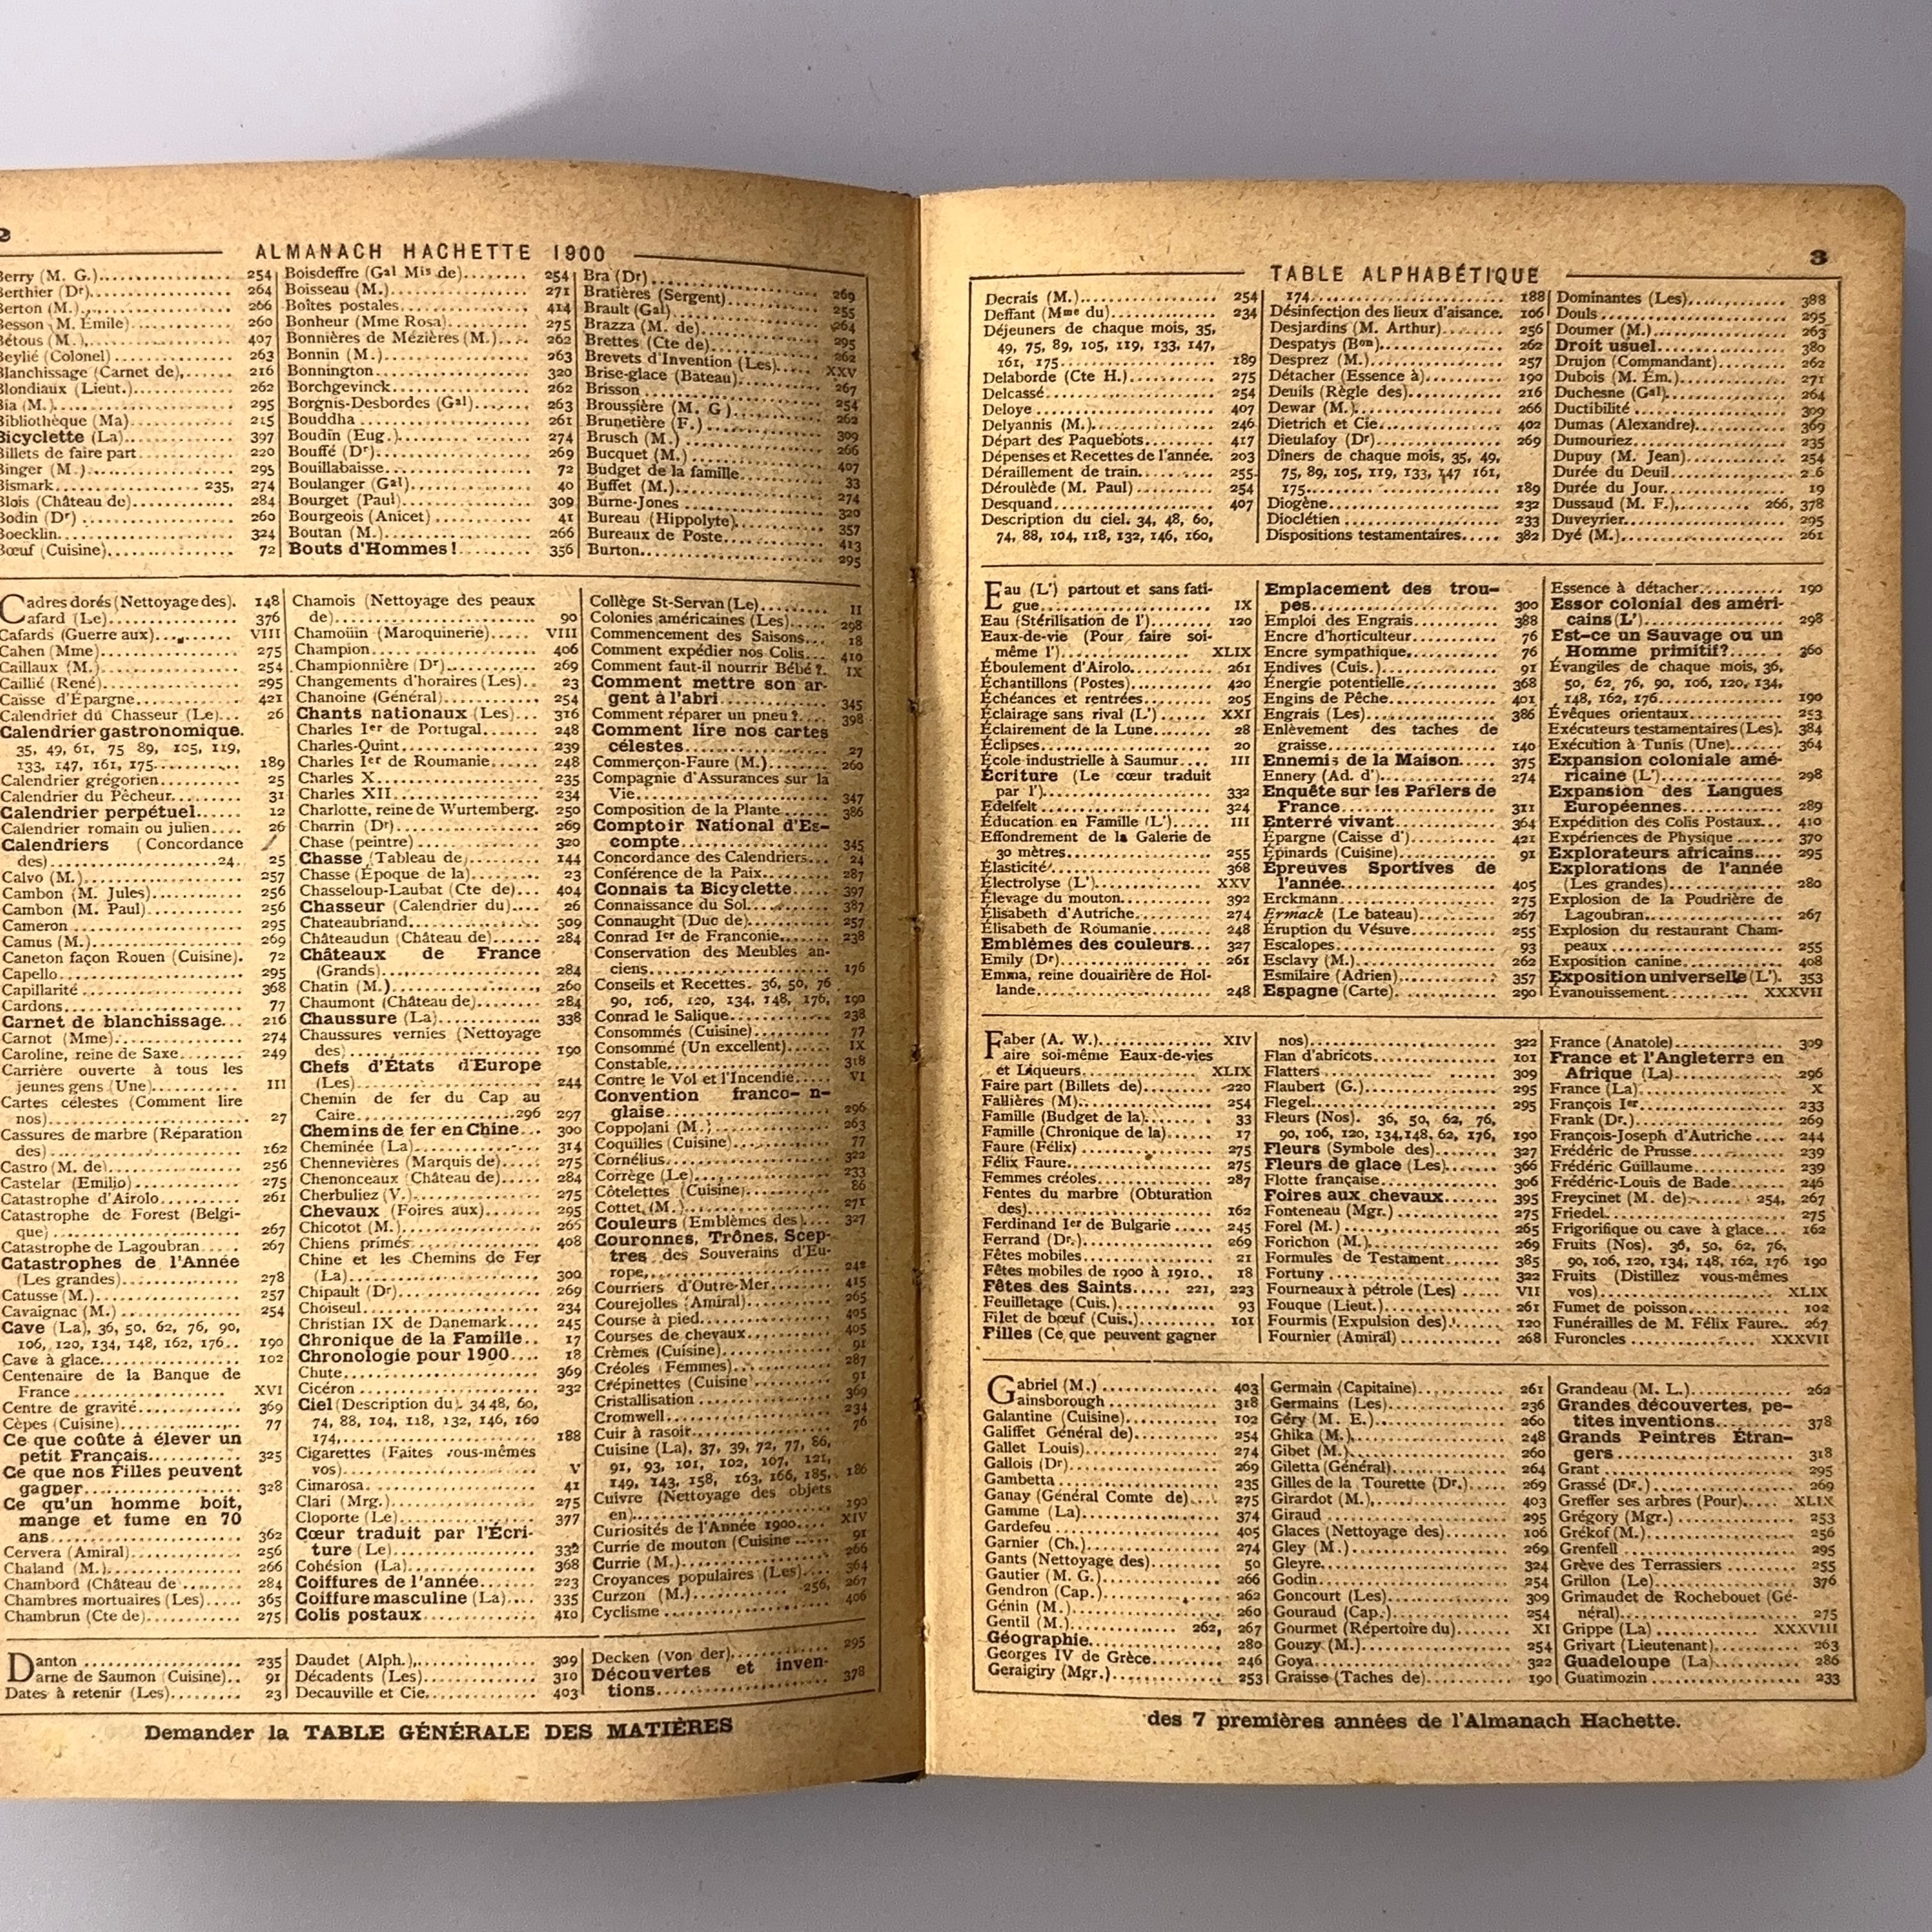 2
ALMANACH HACHETTE 1900
Berry (M. G.) 254
Berthier (Dr) 264
Berton (M.) 266
Besson (M. Émile) 260
Bétous (M.) 407
Beylié (Colonel) 263
Blanchissage (Carnet de) 216
Blondiaux (Lieut.) 262
Bia (M.) 295
Bibliothèque (Ma) 215
Bicyclette (La) 397
Billets de faire part 220
Binger (M.) 295
Bismark 235, 274
Blois (Château de) 284
Bodin (Dr) 260
Boecklin 324
Bœuf (Cuisine) 72
Boisdeffre (Gal Mis de) 254
Boisseau (M.) 271
Boîtes postales 414
Bonheur (Mme Rosa) 275
Bonnières de Mézières (M.) 262
Bonnin (M.) 263
Bonnington 320
Borchgevinck 262
Borgnis-Desbordes (Gal) 263
Bouddha 261
Boudin (Eug.) 274
Bouffé (Dr) 269
Bouillabaisse 72
Boulanger (Gal) 40
Bourget (Paul) 309
Bourgeois (Anicet) 41
Boutan (M.) 266
Bouts d'Hommes! 356
Bra (Dr) 269
Bratières (Sergent) 255
Brault (Gal) 264
Brazza (M. de) 295
Brettes (Cte de) 262
Brevets d'Invention (Les) XXV
Brise-glace (Bateau) 267
Brisson 254
Broussière (M. G) 262
Brunetière (F.) 309
Brusch (M.) 266
Bucquet (M.) 407
Budget de la famille 33
Buffet (M.) 274
Burne-Jones 320
Bureau (Hippolyte) 357
Bureaux de Poste 413
Burton 295
Cadres dorés (Nettoyage des). 148
Cafard (Le) 376
Cafards (Guerre aux) VIII
Cahen (Mme) 275
Caillaux (M.) 254
Caillié (René) 295
Caisse d'Épargne 421
Calendrier du Chasseur (Le) 26
Calendrier gastronomique.
35, 49, 61, 75 89, 105, 119,
133, 147, 161, 175 189
Calendrier grégorien 25
Calendrier du Pêcheur 31
Calendrier perpétuel 12
Calendrier romain ou julien 26
Calendriers (Concordance
des) 24, 25
Calvo (M.) 257
Cambon (M. Jules) 256
Cambon (M. Paul) 256
Cameron 295
Camus (M.) 269
Caneton façon Rouen (Cuisine). 72
Capello 295
Capillarité 368
Cardons 77
Carnet de blanchissage 216
Carnot (Mme) 274
Caroline, reine de Saxe 249
Carrière ouverte à tous les
jeunes gens (Une) III
Cartes célestes (Comment lire
nos) 27
Cassures de marbre (Réparation
des) 162
Castro (M. de) 256
Castelar (Emilio) 275
Catastrophe d'Airolo 261
Catastrophe de Forest (Belgi-
que) 267
Catastrophe de Lagoubran 267
Catastrophes de l'Année
(Les grandes) 278
Catusse (M.) 257
Cavaignac (M.) 254
Cave (La), 36, 50, 62, 76, 90,
106, 120, 134, 148, 162, 176 190
Cave à glace 102
Centenaire de la Banque de
France XVI
Centre de gravité 369
Cèpes (Cuisine) 77
Ce que coûte à élever un
petit Français 325
Ce que nos Filles peuvent
gagner 328
Ce qu'un homme boit,
mange et fume en 70
ans 362
Cervera (Amiral) 256
Chaland (M.) 266
Chambord (Château de 284
Chambres mortuaires (Les) 365
Chambrun (Cte de) 275
Chamois (Nettoyage des peaux
de) 90
Chamoüin (Maroquinerie) VIII
Champion 406
Championnière (Dr) 269
Changements d'horaires (Les) 23
Chanoine (Général) 254
Chants nationaux (Les) 316
Charles Ier de Portugal 248
Charles-Quint 239
Charles Ier de Roumanie 248
Charles X 235
Charles XII 234
Charlotte, reine de Wurtemberg. 250
Charrin (Dr) 269
Chase (peintre) 320
Chasse (Tableau de) 144
Chasse (Époque de la) 23
Chasseloup-Laubat (Cte de) 404
Chasseur (Calendrier du) 26
Chateaubriand 309
Châteaudun (Château de) 284
Châteaux de France
(Grands) 284
Chatin (M.) 260
Chaumont (Château de) 284
Chaussure (La) 338
Chaussures vernies (Nettoyage
des) 190
Chefs d'États d'Europe
(Les) 244
Chemin de fer du Cap au
Caire 296 297
Chemins de fer en Chine 300
Cheminée (La) 314
Chennevières (Marquis de) 275
Chenonceaux (Château de) 284
Cherbuliez (V.) 275
Chevaux (Foires aux) 295
Chicotot (M.) 266
Chiens primés 408
Chine et les Chemins de Fer
(La) 300
Chipault (Dr) 269
Choiseul 234
Christian IX de Danemark 245
Chronique de la Famille 17
Chronologie pour 1900 18
Chute 369
Cicéron 232
Ciel (Description du). 34 48, 60,
74, 88, 104, 118, 132, 146, 160
174, 188
Cigarettes (Faites vous-mêmes
vos) V
Cimarosa 41
Clari (Mrg.) 275
Cloporte (Le) 377
Cœur traduit par l'Écri-
ture (Le) 332
Cohésion (La) 368
Coiffures de l'année 223
Coiffure masculine (La) 335
Colis postaux 410
Collège St-Servan (Le) II
Colonies américaines (Les) 298
Commencement des Saisons 18
Comment expédier nos Colis 410
Comment faut-il nourrir Bébé ?. IX
Comment mettre son ar-
gent à l'abri 345
Comment réparer un pneu ? 398
Comment lire nos cartes
célestes 27
Commerçon-Faure (M.) 260
Compagnie d'Assurances sur la
Vie 347
Composition de la Plante 386
Comptoir National d'Es-
compte 345
Concordance des Calendriers 24
Conférence de la Paix 287
Connais ta Bicyclette 397
Connaissance du Sol 387
Connaught (Duc de) 257
Conrad Ier de Franconie 238
Conservation des Meubles an-
ciens 176
Conseils et Recettes. 36, 50, 76
90, 106, 120, 134, 148, 176, 190
Conrad le Salique 238
Consommés (Cuisine) 77
Consommé (Un excellent) IX
Constable 318
Contre le Vol et l'Incendie VI
Convention franco- n-
glaise 296
Coppolani (M.) 263
Coquilles (Cuisine) 77
Cornélius 322
Corrège (Le) 233
Côtelettes (Cuisine) 86
Cottet (M.) 271
Couleurs (Emblèmes des) 327
Couronnes, Trônes, Scep-
tres des Souverains d'Eu-
rope 242
Courriers d'Outre-Mer 415
Courejolles (Amiral) 265
Course à pied 405
Courses de chevaux 405
Crèmes (Cuisine) 91
Créoles (Femmes) 287
Crépinettes (Cuisine) 91
Cristallisation 369
Cromwell 234
Cuir à rasoir 76
Cuisine (La), 37, 39, 72, 77, 86,
91, 93, 101, 102, 107, 121,
149, 143, 158, 163, 166, 185, 186
Cuivre (Nettoyage des objets
en) 190
Curiosités de l'Année 1900 XIV
Currie de mouton (Cuisine 91
Currie (M.) 266
Croyances populaires (Les) 364
Curzon (M.) 256, 267
Cyclisme 406
Danton 235
Darne de Saumon (Cuisine) 91
Dates à retenir (Les) 23
Daudet (Alph.) 309
Décadents (Les) 310
Decauville et Cie 403
Decken (von der) 295
Découvertes et inven-
tions 378
Demander la TABLE GÉNÉRALE DES MATIÈRES
3
TABLE ALPHABÉTIQUE
Decrais (M.) 254
Deffant (Mme du) 234
Déjeuners de chaque mois, 35,
49, 75, 89, 105, 119, 133, 147,
161, 175 189
Delaborde (Cte H.) 275
Delcassé 254
Deloye 407
Delyannis (M.) 246
Départ des Paquebots 417
Dépenses et Recettes de l'année. 203
Déraillement de train 255
Déroulède (M. Paul) 254
Desquand 407
Description du ciel. 34, 48, 60,
74, 88, 104, 118, 132, 146, 160,
174 188
Désinfection des lieux d'aisance. 106
Desjardins (M. Arthur) 256
Despatys (Bon) 262
Desprez (M.) 257
Détacher (Essence à) 190
Deuils (Règle des) 216
Dewar (M.) 266
Dietrich et Cie 402
Dieulafoy (Dr) 269
Dîners de chaque mois, 35, 49,
75, 89, 105, 119, 133, 147 161,
175 189
Diogène 232
Dioclétien 233
Dispositions testamentaires 382
Dominantes (Les) 388
Douls 295
Doumer (M.) 263
Droit usuel 380
Drujon (Commandant) 262
Dubois (M. Ém.) 271
Duchesne (Gal) 264
Ductibilité 309
Dumas (Alexandre) 369
Dumouriez 235
Dupuy (M. Jean) 254
Durée du Deuil 2 6
Durée du Jour 19
Dussaud (M. F.) 266, 378
Duveyrier 295
Dyé (M.) 261
Eau (L') partout et sans fati-
gue IX
Eau (Stérilisation de l') 120
Eaux-de-vie (Pour faire soi-
même l') XLIX
Éboulement d'Airolo 261
Échantillons (Postes) 420
Échéances et rentrées 205
Éclairage sans rival (L') XXI
Éclairement de la Lune 28
Éclipses 20
École industrielle à Saumur III
Écriture (Le cœur traduit
par l') 332
Edelfelt 324
Éducation en Famille (L') III
Effondrement de la Galerie de
30 mètres 255
Élasticité 368
Électrolyse (L') XXV
Élevage du mouton 392
Élisabeth d'Autriche 274
Élisabeth de Roumanie 248
Emblèmes des couleurs 327
Emily (Dr) 261
Emma, reine douairière de Hol-
lande 248
Emplacement des trou-
pes 300
Emploi des Engrais 388
Encre d'horticulteur 76
Encre sympathique 76
Endives (Cuis.) 91
Énergie potentielle 368
Engins de Pêche 401
Engrais (Les) 386
Enlèvement des taches de
graisse 140
Ennemis de la Maison 375
Ennery (Ad. d') 274
Enquête sur les Parlers de
France 311
Enterré vivant 364
Épargne (Caisse d') 421
Épinards (Cuisine) 91
Épreuves Sportives de
l'année 405
Erckmann 275
Ermack (Le bateau) 267
Éruption du Vésuve 255
Escalopes 93
Esclavy (M.) 262
Esmilaire (Adrien) 357
Espagne (Carte) 290
Essence à détacher 190
Essor colonial des améri-
cains (L') 298
Est-ce un Sauvage ou un
Homme primitif? 360
Évangiles de chaque mois, 36,
50, 62, 76, 90, 106, 120, 134,
148, 162, 176 190
Évêques orientaux 253
Exécuteurs testamentaires (Les). 384
Exécution à Tunis (Une) 364
Expansion coloniale amé-
ricaine (L') 298
Expansion des Langues
Européennes 289
Expédition des Colis Postaux 410
Expériences de Physique 370
Explorateurs africains 295
Explorations de l'année
(Les grandes) 280
Explosion de la Poudrière de
Lagoubran 267
Explosion du restaurant Cham-
peaux 255
Exposition canine 408
Exposition universelle (L'). 353
Évanouissement XXXVII
Faber (A. W.) XIV
Faire soi-même Eaux-de-vies
et Liqueurs XLIX
Faire part (Billets de) 220
Fallières (M) 254
Famille (Budget de la) 33
Famille (Chronique de la) 17
Faure (Félix) 275
Félix Faure 275
Femmes créoles 287
Fentes du marbre (Obturation
des) 162
Ferdinand Ier de Bulgarie 245
Ferrand (Dr.) 269
Fêtes mobiles 21
Fêtes mobiles de 1900 à 1910 18
Fêtes des Saints 221, 223
Feuilletage (Cuis.) 93
Filet de bœuf (Cuis.) 101
Filles (Ce que peuvent gagner
nos) 322
Flan d'abricots 101
Flatters 309
Flaubert (G.) 295
Flegel 295
Fleurs (Nos). 36, 50, 62, 76,
90, 106, 120, 134, 148, 62, 176, 190
Fleurs (Symbole des) 327
Fleurs de glace (Les) 366
Flotte française 306
Foires aux chevaux 395
Fonteneau (Mgr.) 275
Forel (M.) 265
Forichon (M.) 269
Formules de Testament 385
Fortuny 322
Fourneaux à pétrole (Les) VII
Fouque (Lieut.) 261
Fourmis (Expulsion des) 120
Fournier (Amiral) 268
France (Anatole) 309
France et l'Angleterre en
Afrique (La) 296
France (La) X
François Ier 233
Frank (Dr.) 269
François-Joseph d'Autriche 244
Frédéric de Prusse 239
Frédéric Guillaume 239
Frédéric-Louis de Bade 246
Freycinet (M. de) 254, 267
Friedel 275
Frigorifique ou cave à glace 162
Fruits (Nos). 36, 50, 62, 76,
90, 106, 120, 134, 148, 162, 176 190
Fruits (Distillez vous-mêmes
vos) XLIX
Fumet de poisson 102
Funérailles de M. Félix Faure 267
Furoncles XXXVII
Gabriel (M.) 403
Gainsborough 318
Galantine (Cuisine) 102
Galiffet Général de) 254
Gallet Louis) 274
Gallois (Dr) 269
Gambetta 235
Ganay (Général Comte de) 275
Gamme (La) 374
Gardefeu 405
Garnier (Ch.) 274
Gants (Nettoyage des) 50
Gautier (M. G.) 266
Gendron (Cap.) 262
Génin (M.) 260
Gentil (M.) 262, 267
Géographie 280
Georges IV de Grèce 246
Geraigiry (Mgr.) 253
Germain (Capitaine) 261
Germains (Les) 236
Géry (M. E.) 260
Ghika (M.) 248
Gibet (M.) 260
Giletta (Général) 264
Gilles de la Tourette (Dr.) 269
Girardot (M.) 403
Giraud 295
Glaces (Nettoyage des) 106
Gley (M.) 269
Gleyre 324
Godin 254
Goncourt (Les) 309
Gouraud (Cap.) 254
Gourmet (Répertoire du) XI
Gouzy (M.) 254
Goya 322
Graisse (Taches de) 190
Grandeau (M. L.) 262
Grandes découvertes, pe-
tites inventions 378
Grands Peintres Étran-
gers 318
Grant 295
Grassé (Dr.) 269
Greffer ses arbres (Pour) XLIX
Grégory (Mgr.) 253
Grékof (M.) 256
Grenfell 295
Grève des Terrassiers 255
Grillon (Le) 376
Grimaudet de Rochebouet (Gé-
néral) 275
Grippe (La) XXXVIII
Grivart (Lieutenant) 263
Guadeloupe (La) 286
Guatimozin 233
des 7 premières années de l'Almanach Hachette.